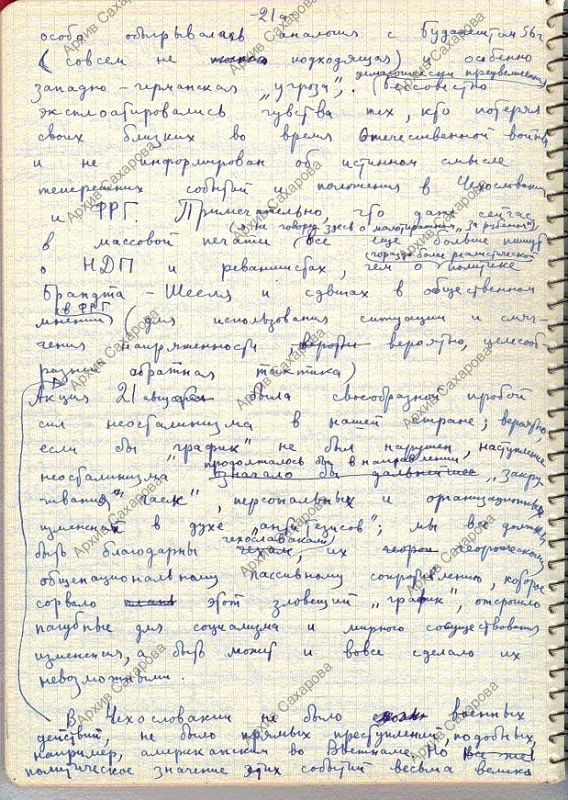 -21а-
особо обыгрывалась аналогия с Будапештом 56 г
(совсем не подходящая) и особенно
демагогически преувеличенная
западно-германская „угроза“. (Бессовестно
эксплоатировались чувства тех, кто потерял
своих близких во время Отечественной войны
и не информирован об истинном смысле
теперешних событий и положения в Чехословакии
и ФРГ. Примечательно, что даже сейчас
(я не говорю здесь о малотиражном „За рубежом“)
в массовой печати все еще больше пишут
о НДП и реваншистах, чем о политике
гораздо более реалистической
Брандта - Шееля и сдвигах в общественном
(в ФРГ)
мнении (для использования ситуации и смяг-
чения напряженности вероятно, целесооб
разна обратная тактика)
Акция 21 августа была своеобразной пробой
сил неосталинизма в нашей стране; вероятно,
если бы "график" не был нарушен, наступление
продолжалось бы в направлении
неосталинизма означало бы дальнейшее „закру
чивания" гаек", персональных и организационных
изменений в духе "анти тезисов"; мы все должны
чехословакам,
быть благодарны чехам, их героическому
общенациональному пассивному сопротивлению, которое
сорвало этот зловещий „график", отсрочило
пагубные для социализма и мирного сосуществования
изменения, а быть может и вовсе сделало их
невозможными.
В Чехословакии не было военных
действий, не было прямых преступлений, подобных,
например, американским во Вьетнаме. Но все же
политическое значение этих событий весьма велико
Архив Сахарова